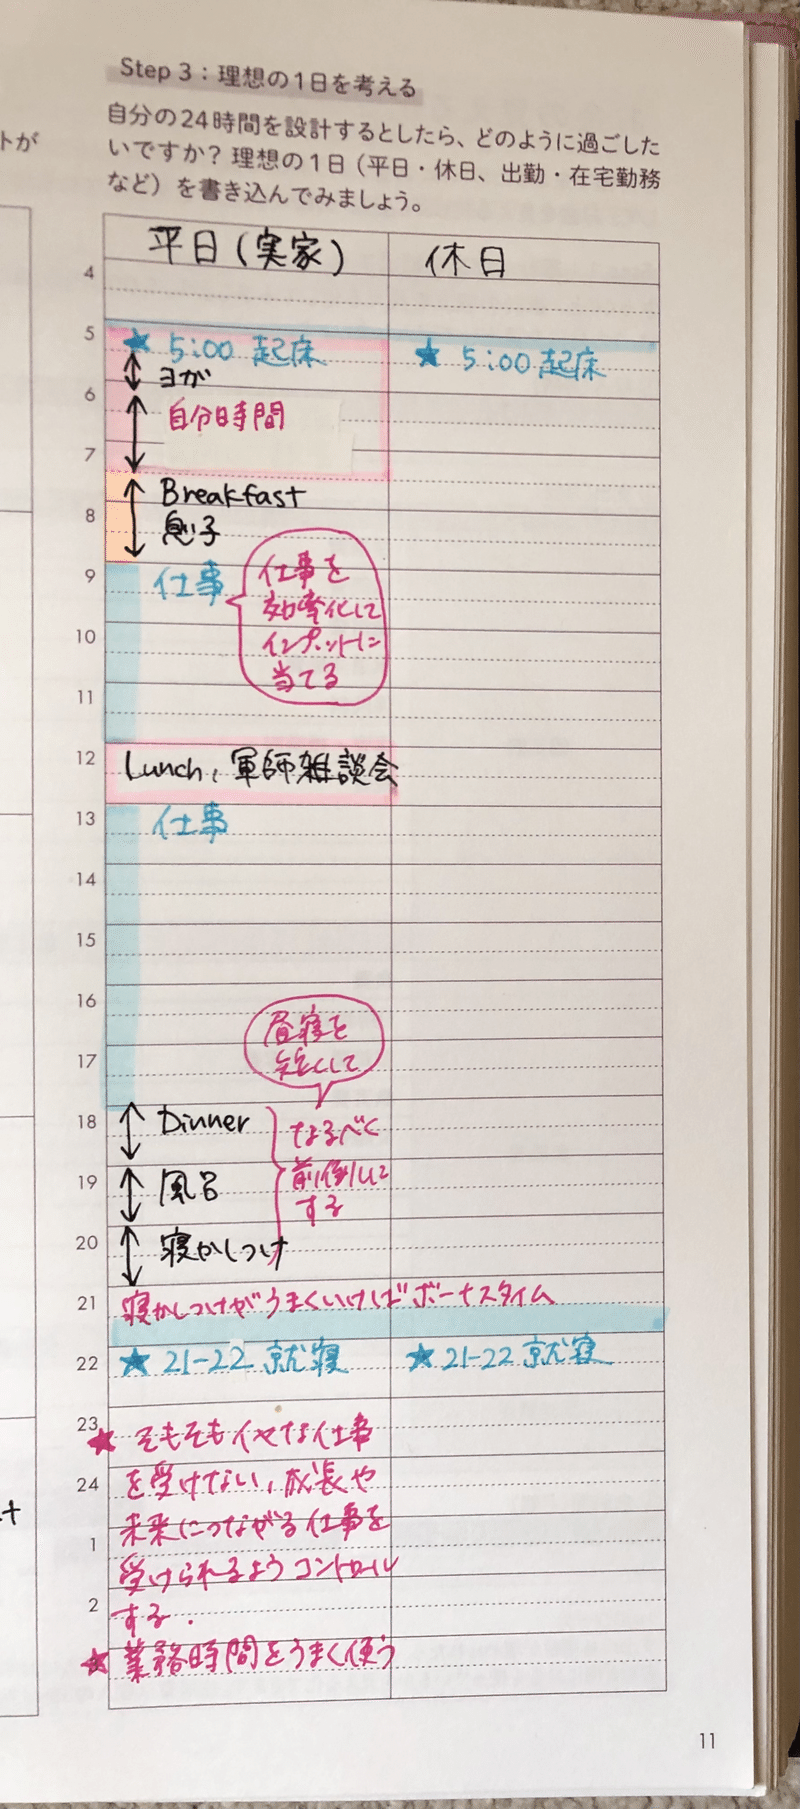 トが
Step 3：理想の1日を考える
自分の24時間を設計するとしたら、どのように過ごした
いですか？理想の1日（平日・休日、出勤・在宅勤務
など）を書き込んでみましょう。
平日（実家） 休日
4
5
★ 5:00 起床 ★ 5:00 起床
ヨガ
6
自分時間
7
Breakfast
8
息子
9
仕事
仕事を
効率化して
インプットに
当てる
10
11
12
Lunch, 軍師雑談会
13
仕事
14
15
16
昼寝を
短くして
17
18
Dinner
なるべく
前倒しに
する
19
風呂
20
寝かしつけ
21
寝かしつけがうまくいけばボーナスタイム
22
★ 21-22 就寝 ★ 21-22 就寝
23
★ そもそもイヤな仕事
を受けない, 成長や
24
未来につながる仕事を
1
受けられるようコントロール
2
する.
★ 業務時間をうまく使う
11